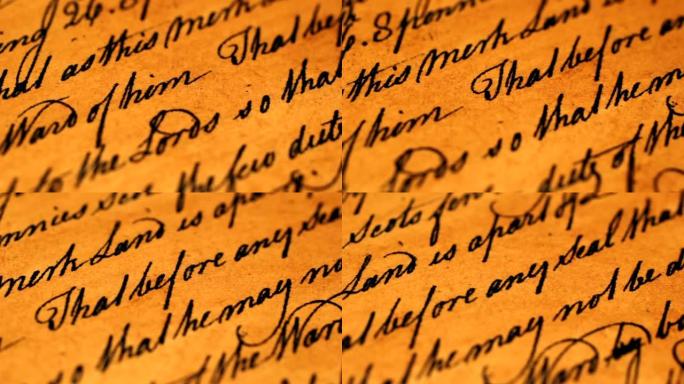 ing 26.8
hat as this merk
Ward of him That be
d to the Lords so that
the few duti
8 pennie
this merk Land is
him That before an
Lords so that he m
duty of the
nnies scot
merk Land is apart
That before any sea
so that he may no
of the Ward
scots
Land is apart of
al before any seal that
at he may not be d
Ward by